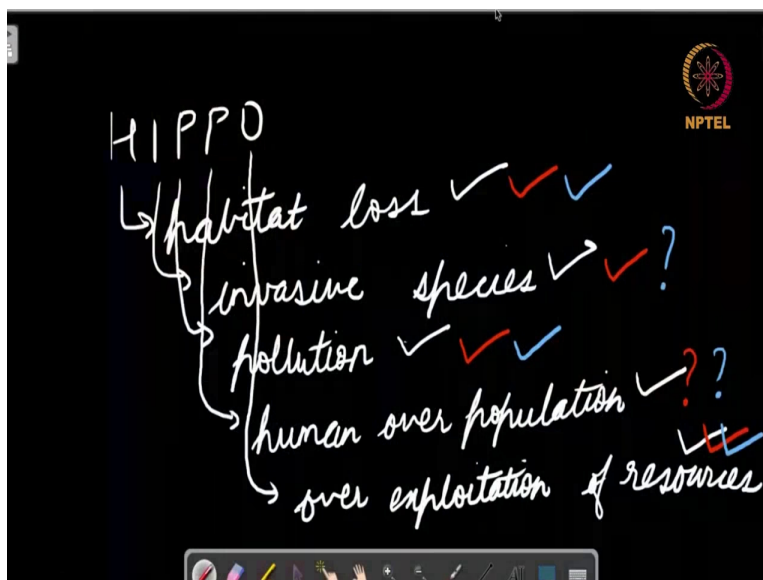 NPTEL
HIPPO
habitat loss ✓ ✓ ✓
invasive species ✓ ✓ ?
pollution ✓ ✓ ✓
human over population ✓ ? ?
over exploitation of resources ✓ ✓ ✓